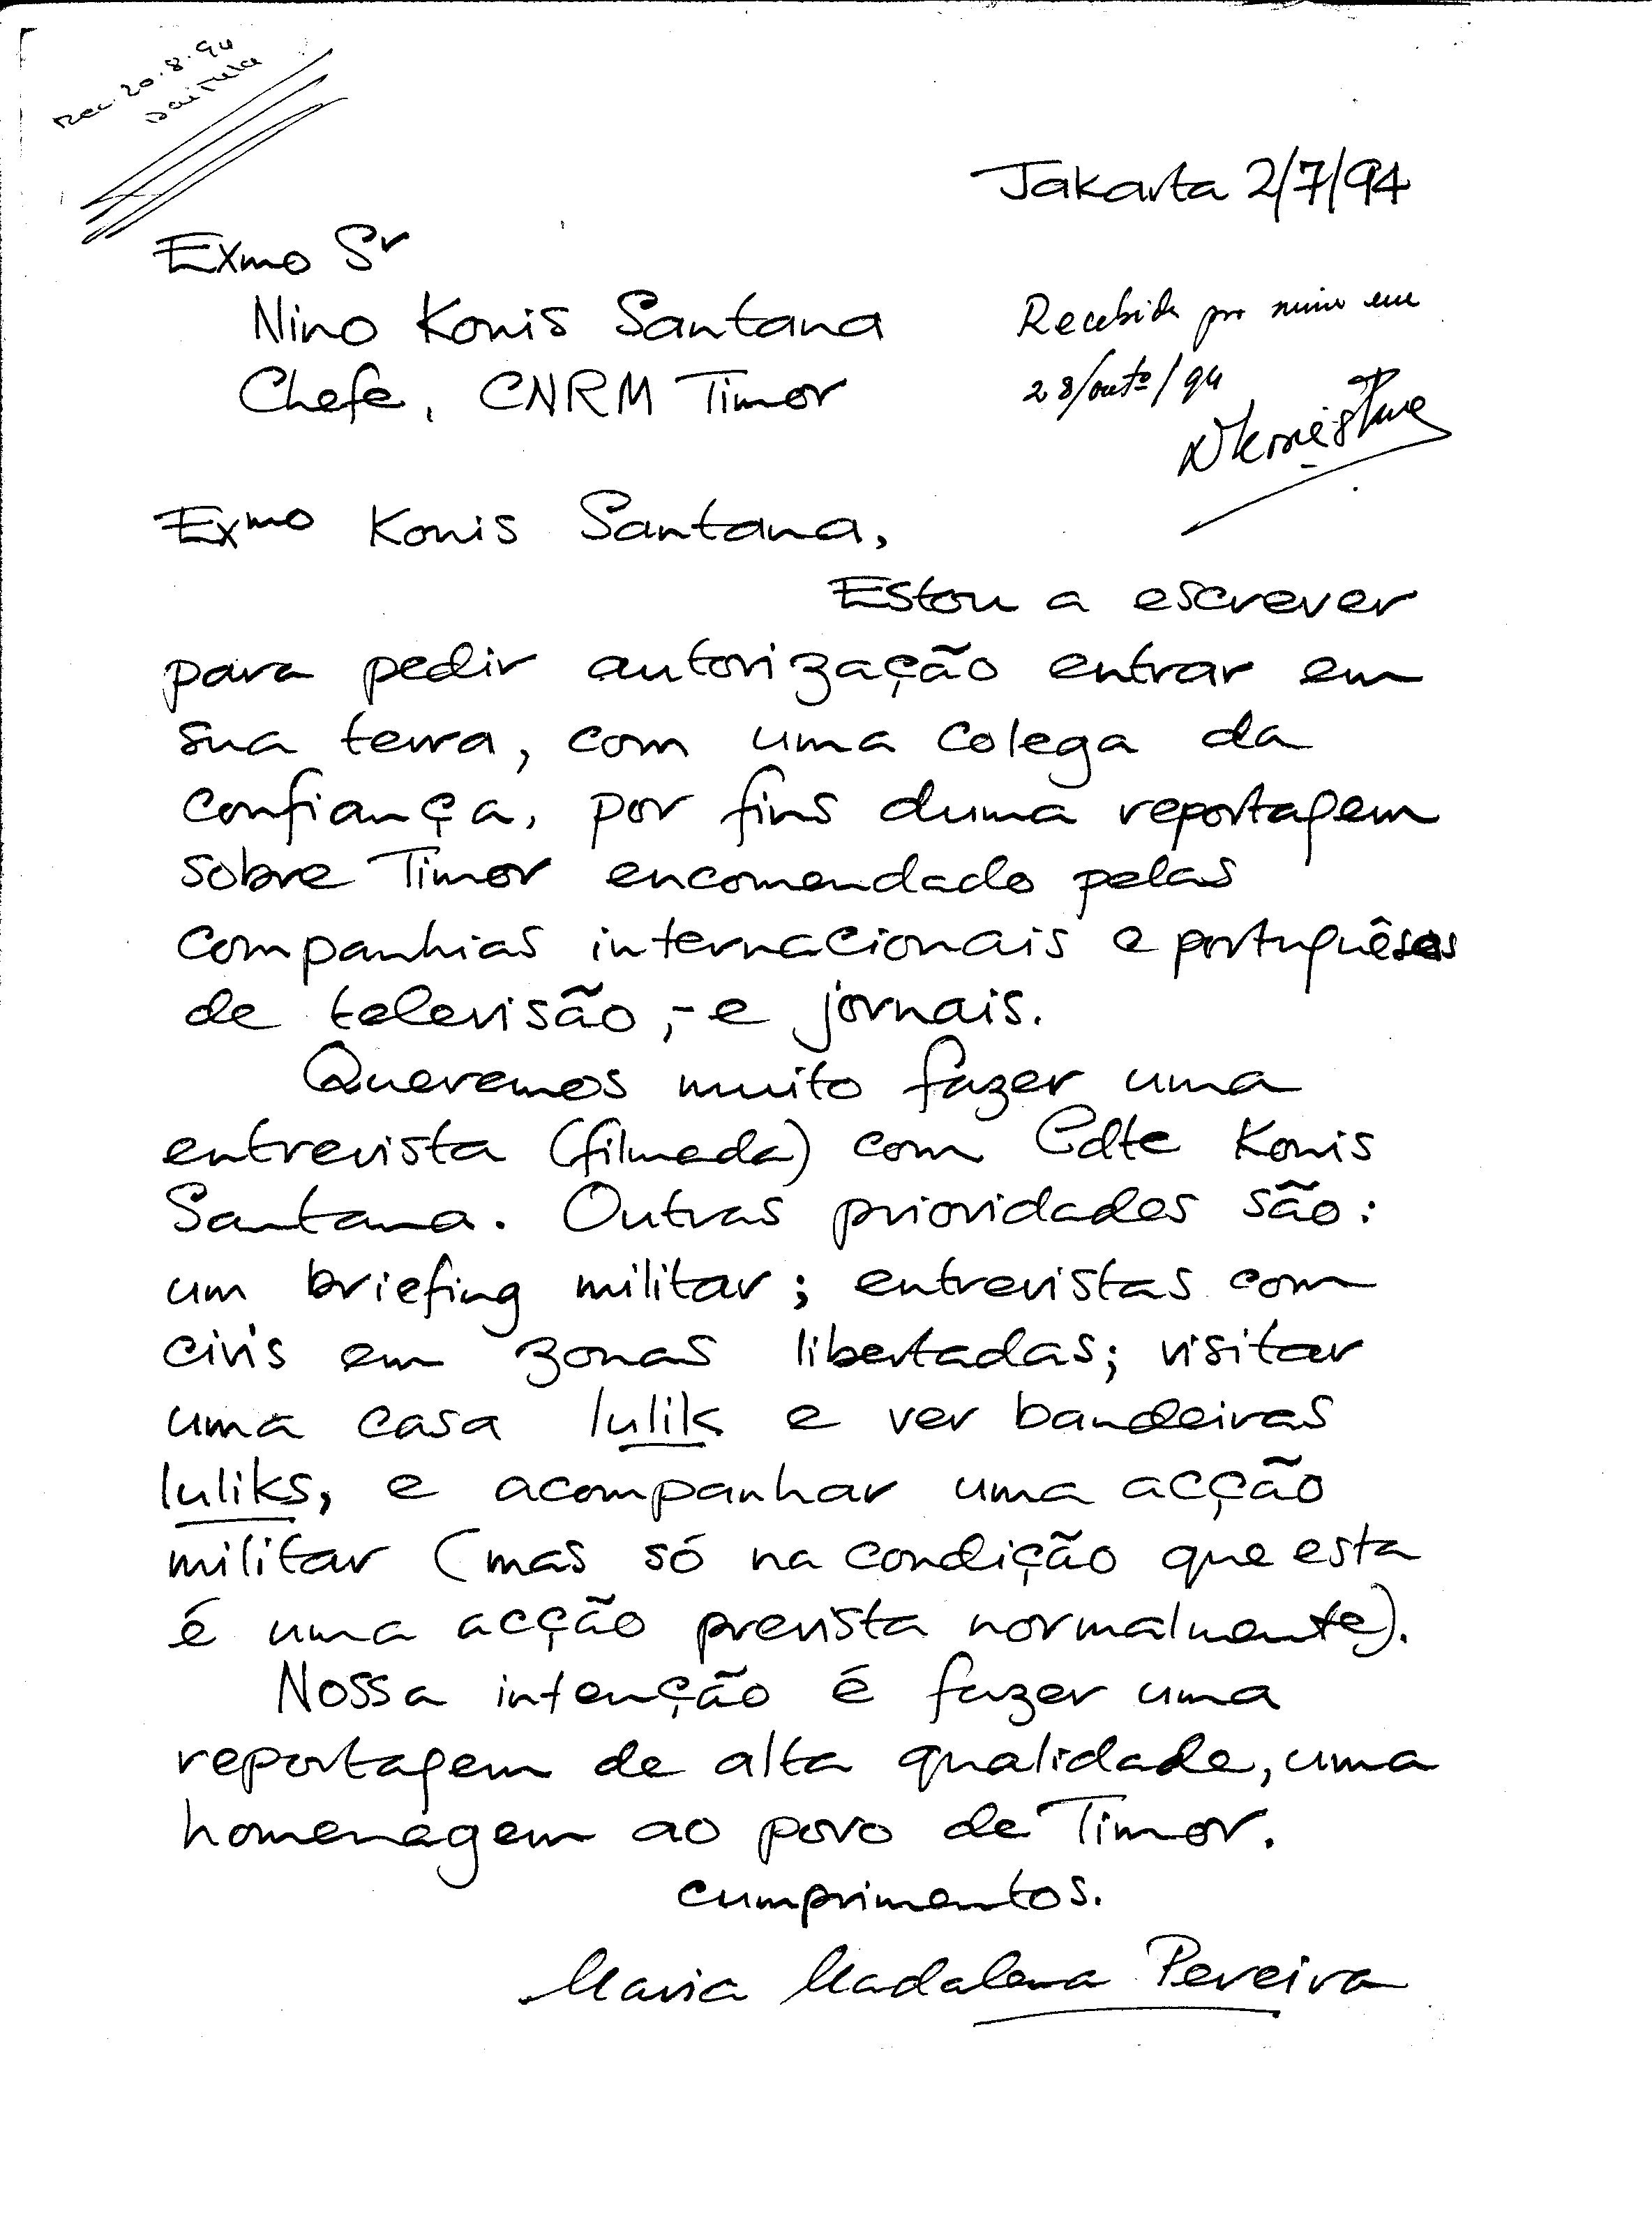 Rec. 20.8.94
Jakarta 2/7/94
Exmo Sr
Nino Konis Santana
Chefe, CNRM Timor
Recebida por mim em
28/outº/94
Exmo Konis Santana,
Estou a escrever
para pedir autorização entrar em
sua terra, com uma colega da
confiança, por fins duma reportagem
sobre Timor encomendado pelas
companhias internacionais e portuguêsas
de televisão,- e jornais.
Queremos muito fazer uma
entrevista (filmada) com Cdte Konis
Santana. Outras prioridades são:
um briefing militar; entrevistas com
civis em zonas libertadas; visitar
uma casa lulik e ver bandeiras
luliks, e acompanhar uma acção
militar (mas só na condição que esta
é uma acção prevista normalmente).
Nossa intenção é fazer uma
reportagem de alta qualidade, uma
homenagem ao povo de Timor.
cumprimentos.
Maria Madalena Pereira